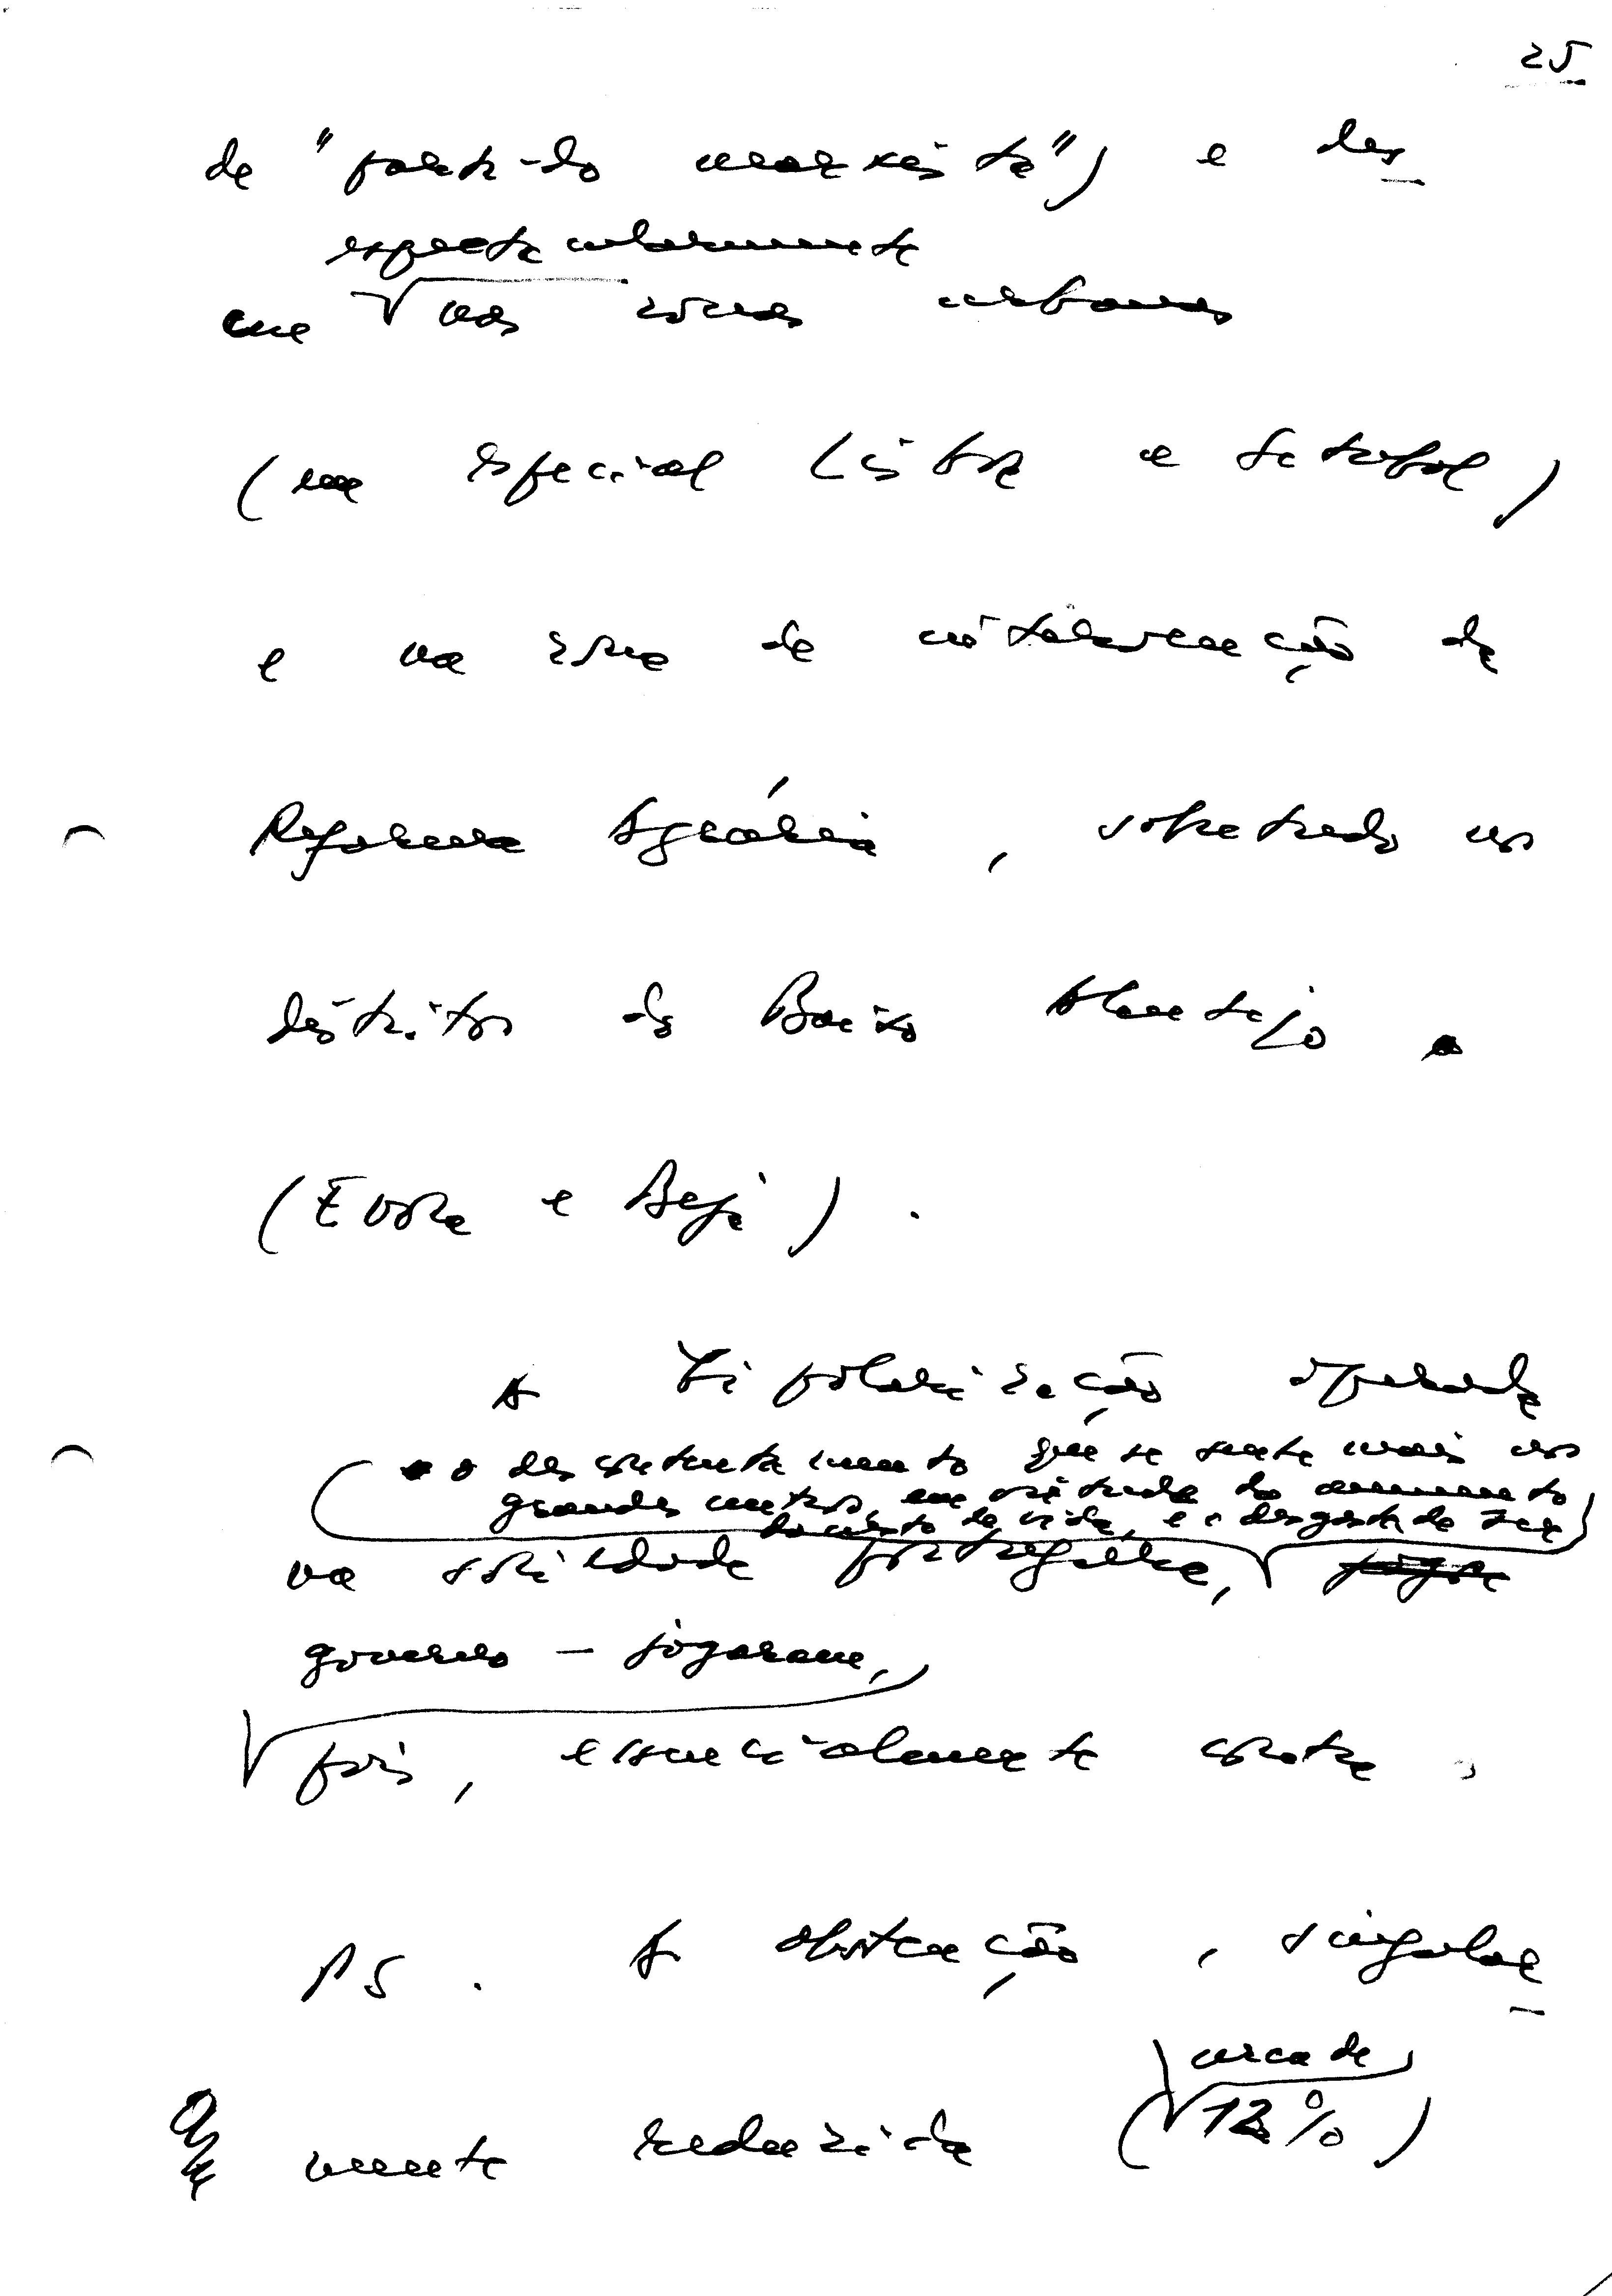 25
de "partido marxista") e des
espectacularmente
ceu nas zonas urbanas
(em especial Lisboa e Setúbal)
e na zona de intervenção da
Reforma Agrária, sobretudo nos
distritos do Baixo Alentejo
(Evora e Beja).
A bipolarização operada
o descontentamento que se sente mais nos
grandes centros, em virtude do aumento
do custo de vida, e o desgaste de ser
na sociedade portuguesa,
governo - jogaram,
pois, essencialmente contra o
PS. A abstenção, singular
cerca de
mente reduzida (12%)